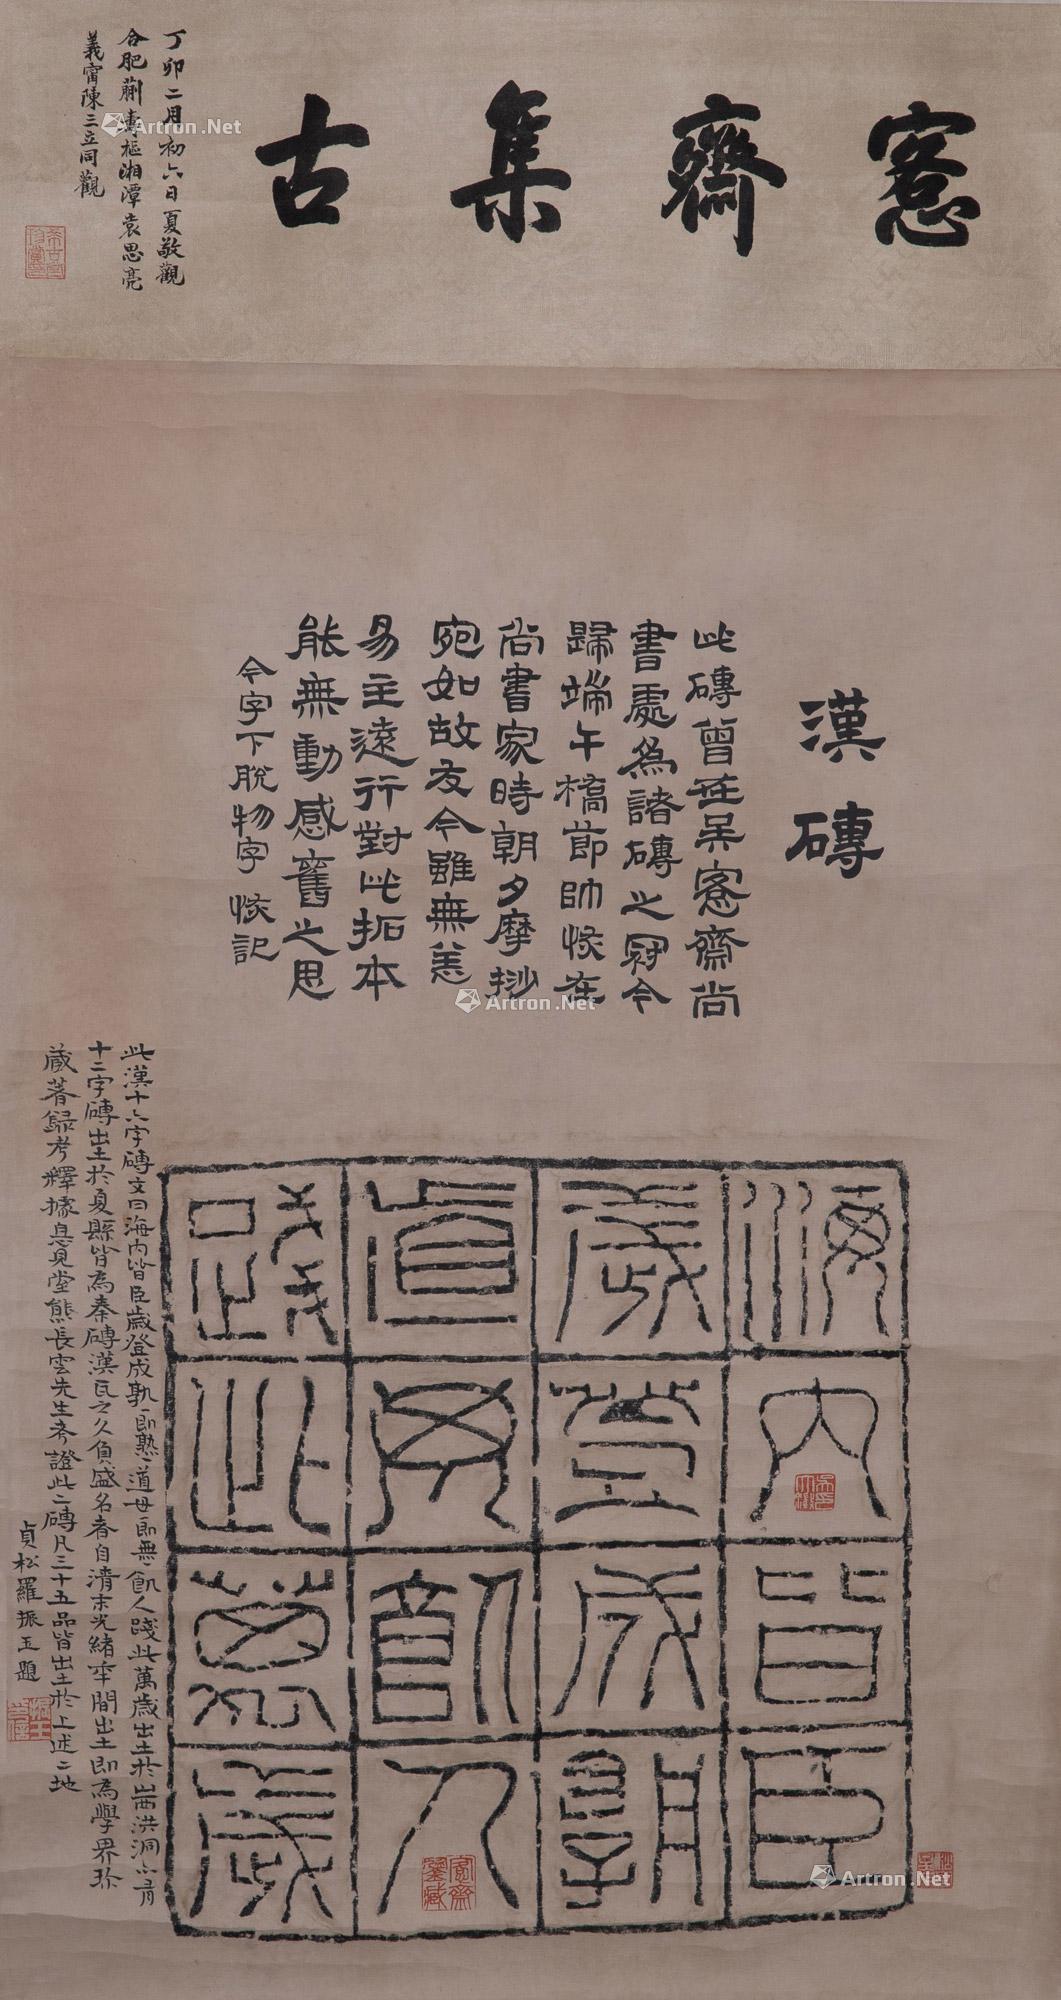 愙齋集古
丁卯二月初六日夏敬觀
合肥蒯壽樞湘潭袁思亮
義甯陳三立同觀
漢磚
此磚曾在吴愙齋尚
書處為諸磚之冠今
歸端午橋節帥悐在
尚書家時朝夕摩挱
宛如故友今雖無恙
易主遠行對此拓本
能無動感舊之思
今字下脫物字 悐記
海内皆臣
歲登成孰
道毋飢人
踐此萬歲
此漢十六字磚文曰海内皆臣歲登成孰即熟道毋即無飢人踐此萬歲出土於山西洪洞亦有
十二字磚出土於夏縣皆為秦磚漢瓦之久負盛名者自清末光緒年間出土即為學界珍
藏著録考釋據息見堂熊長雲先生考證此二磚凡三十五品皆出土於上述二地
貞松羅振玉題
愙齋鑒藏
Artron.Net
Artron.Net
Artron.Net